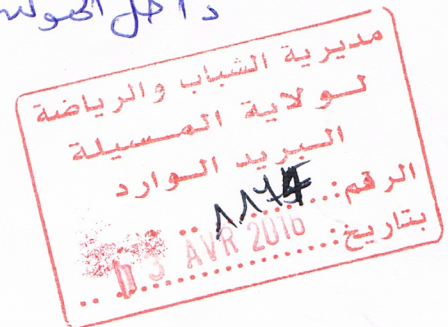 داخل
مديرية الشباب والرياضة
لولاية المسيلة
البريد الوارد
الرقم:
بتاريخ: 03 AVR 2016